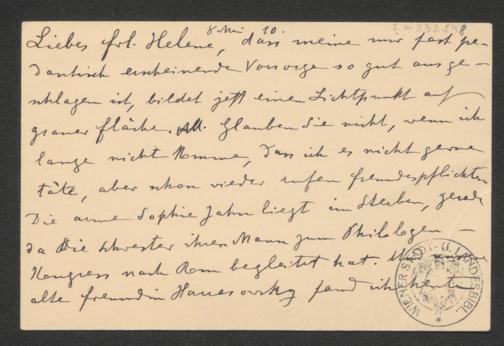 8 Mai 10.
I.N. 232.848
Liebes Frl. Helene, dass meine mir fast pe-
dantisch erscheinende Vorsorge so gut ausge-
schlagen ist, bildet jetzt einen Lichtpunkt auf
grauer Fläche. Glauben Sie nicht, wenn ich
lange nicht komme, dass ich es nicht gerne
täte, aber schon wieder rufen Freundespflichten
Die arme Sophie Jahn liegt im Sterben, gerade
da die Schwester ihren Mann zum Philologen –
Kongress nach Rom begleitet hat.
alte Freundin fand ich heute
WIENER STADT- U. LANDESBIBL.